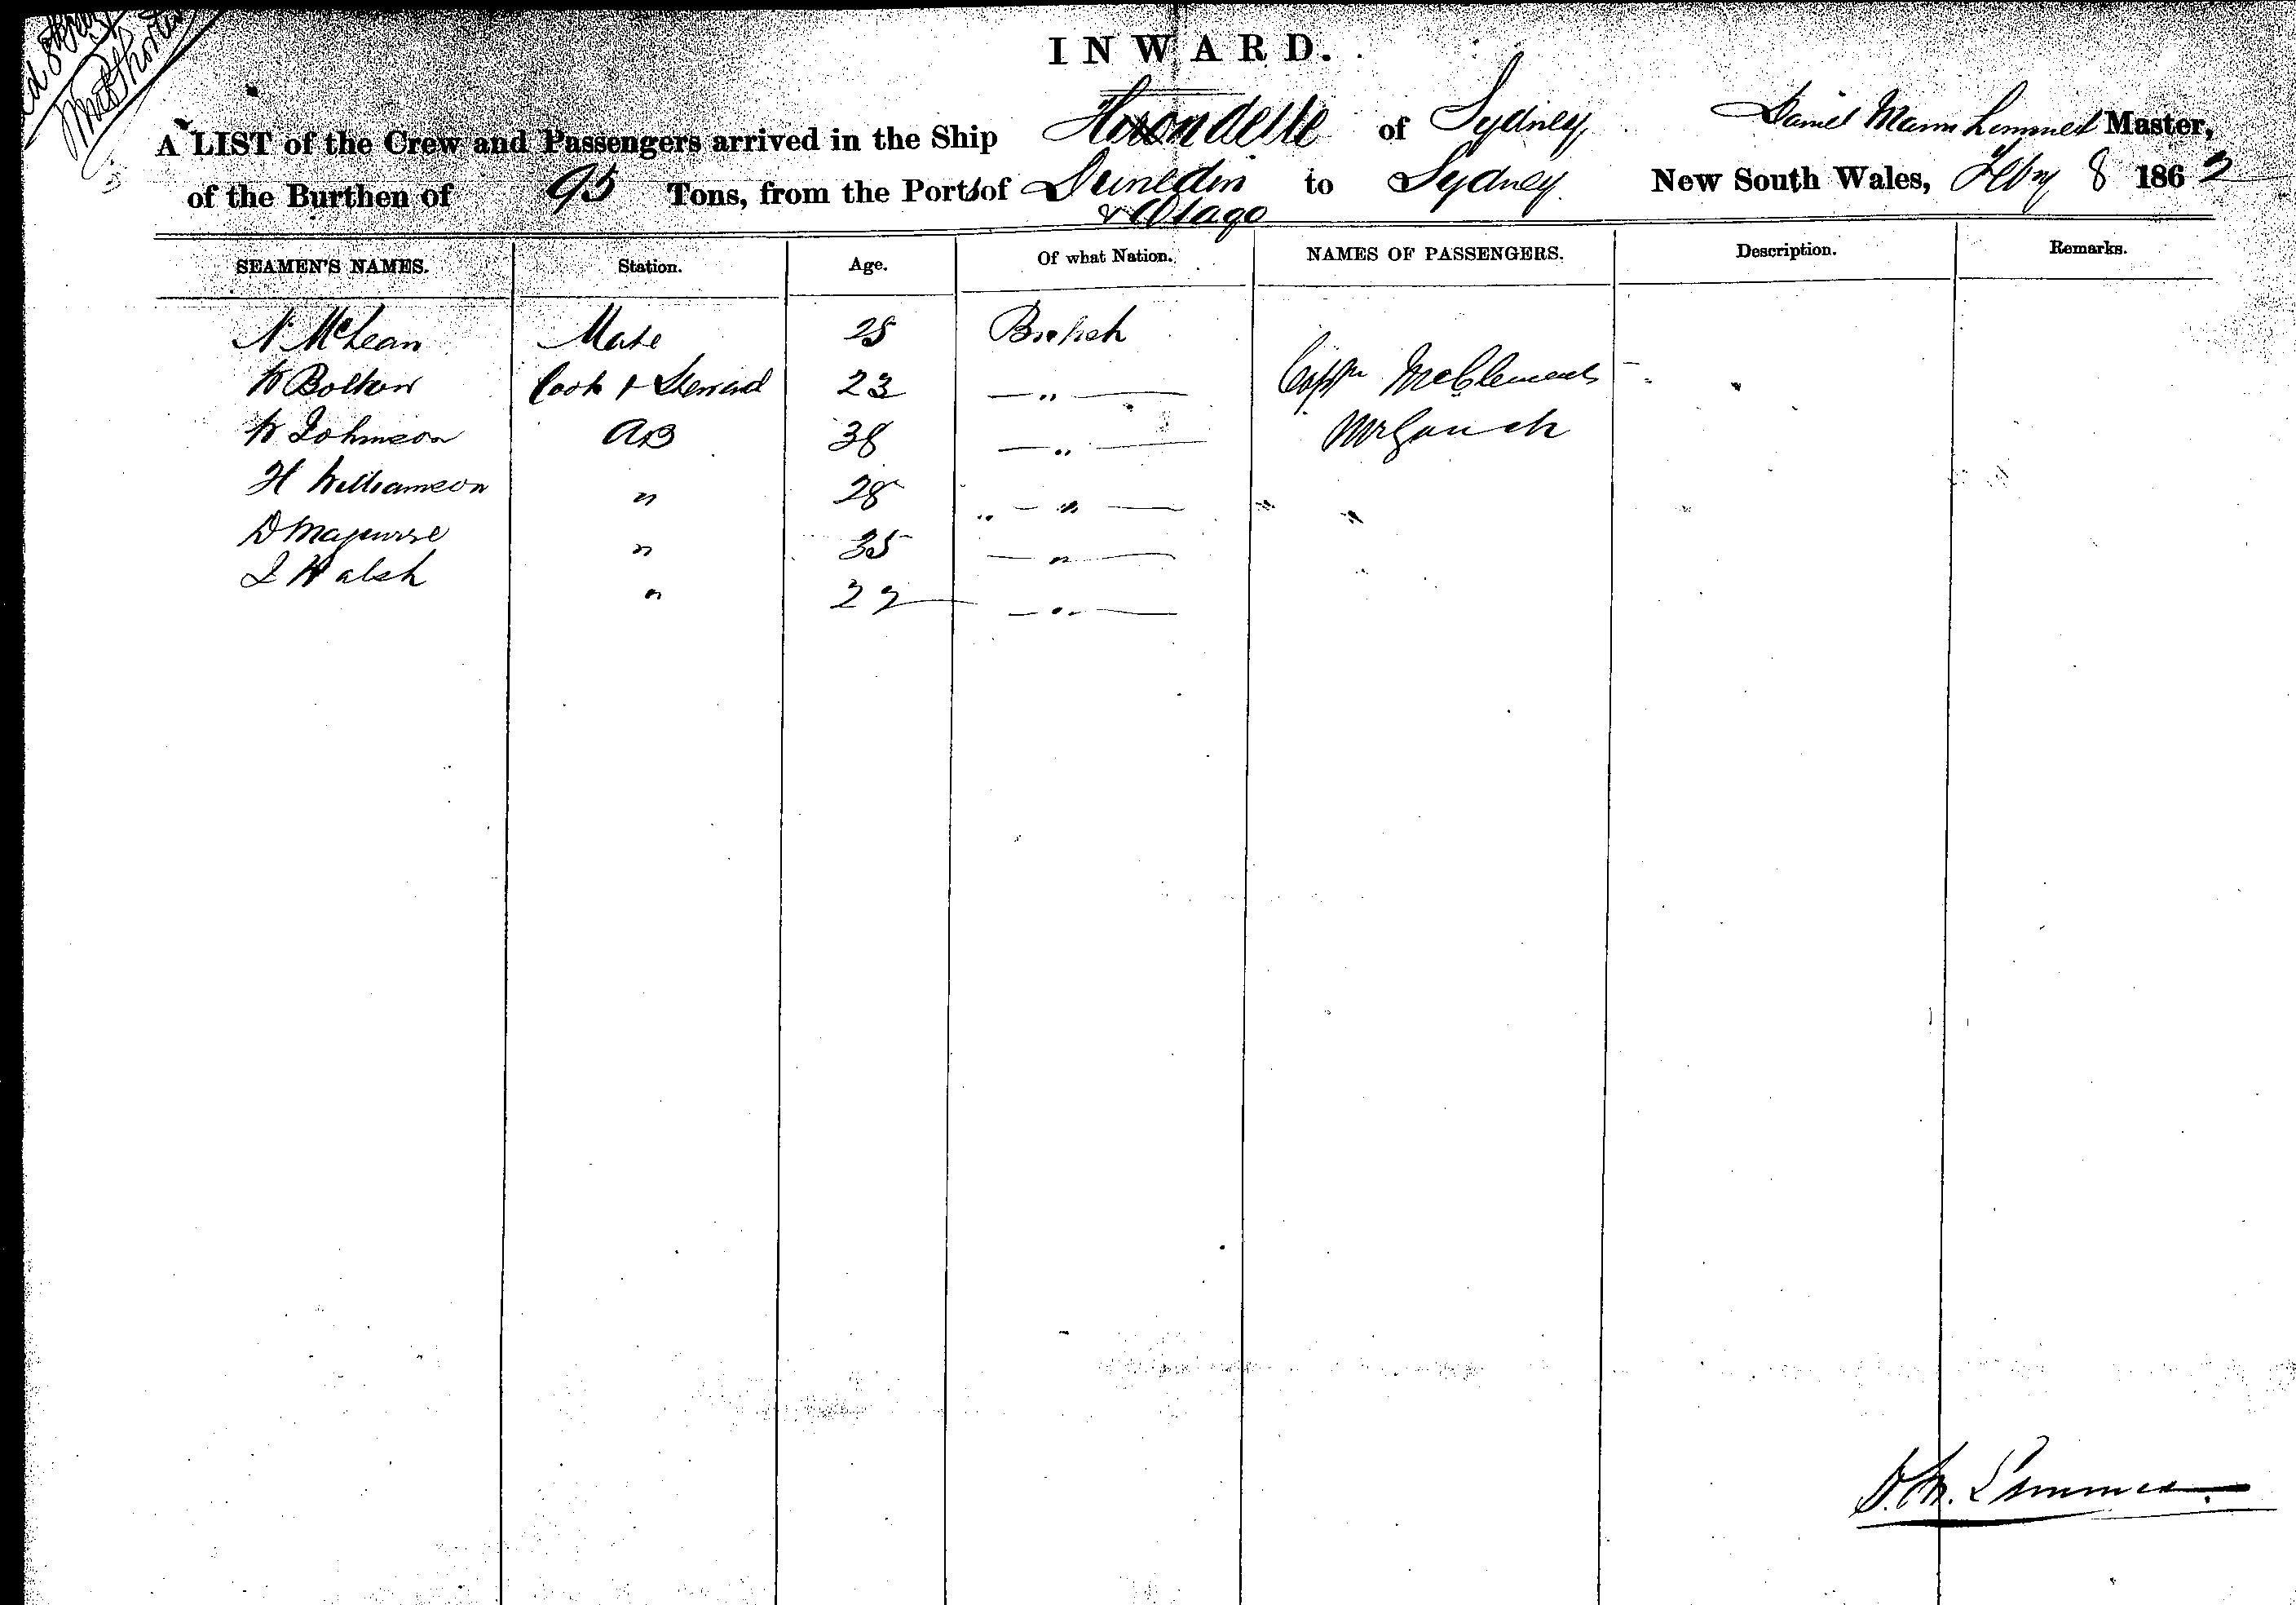 INWARD.
A LIST of the Crew and Passengers arrived in the Ship Hirondelle of Sydney, Daniel Mann Lemmel Master,
of the Burthen of 95 Tons, from the Ports of Dunedin to Sydney. New South Wales, Feby 8 1863
& Otago
SEAMEN'S NAMES. Station. Age. Of what Nation. NAMES OF PASSENGERS. Description. Remarks.
N McLean Mate 28 British
W Bolton Cook & Steward 23 — " — Capn McClements
W Johnson AB 38 — " — Mr
H Williamson " 28 — " —
D Maguire " 35 — " —
J Walsh " 22 — " —
D. M.